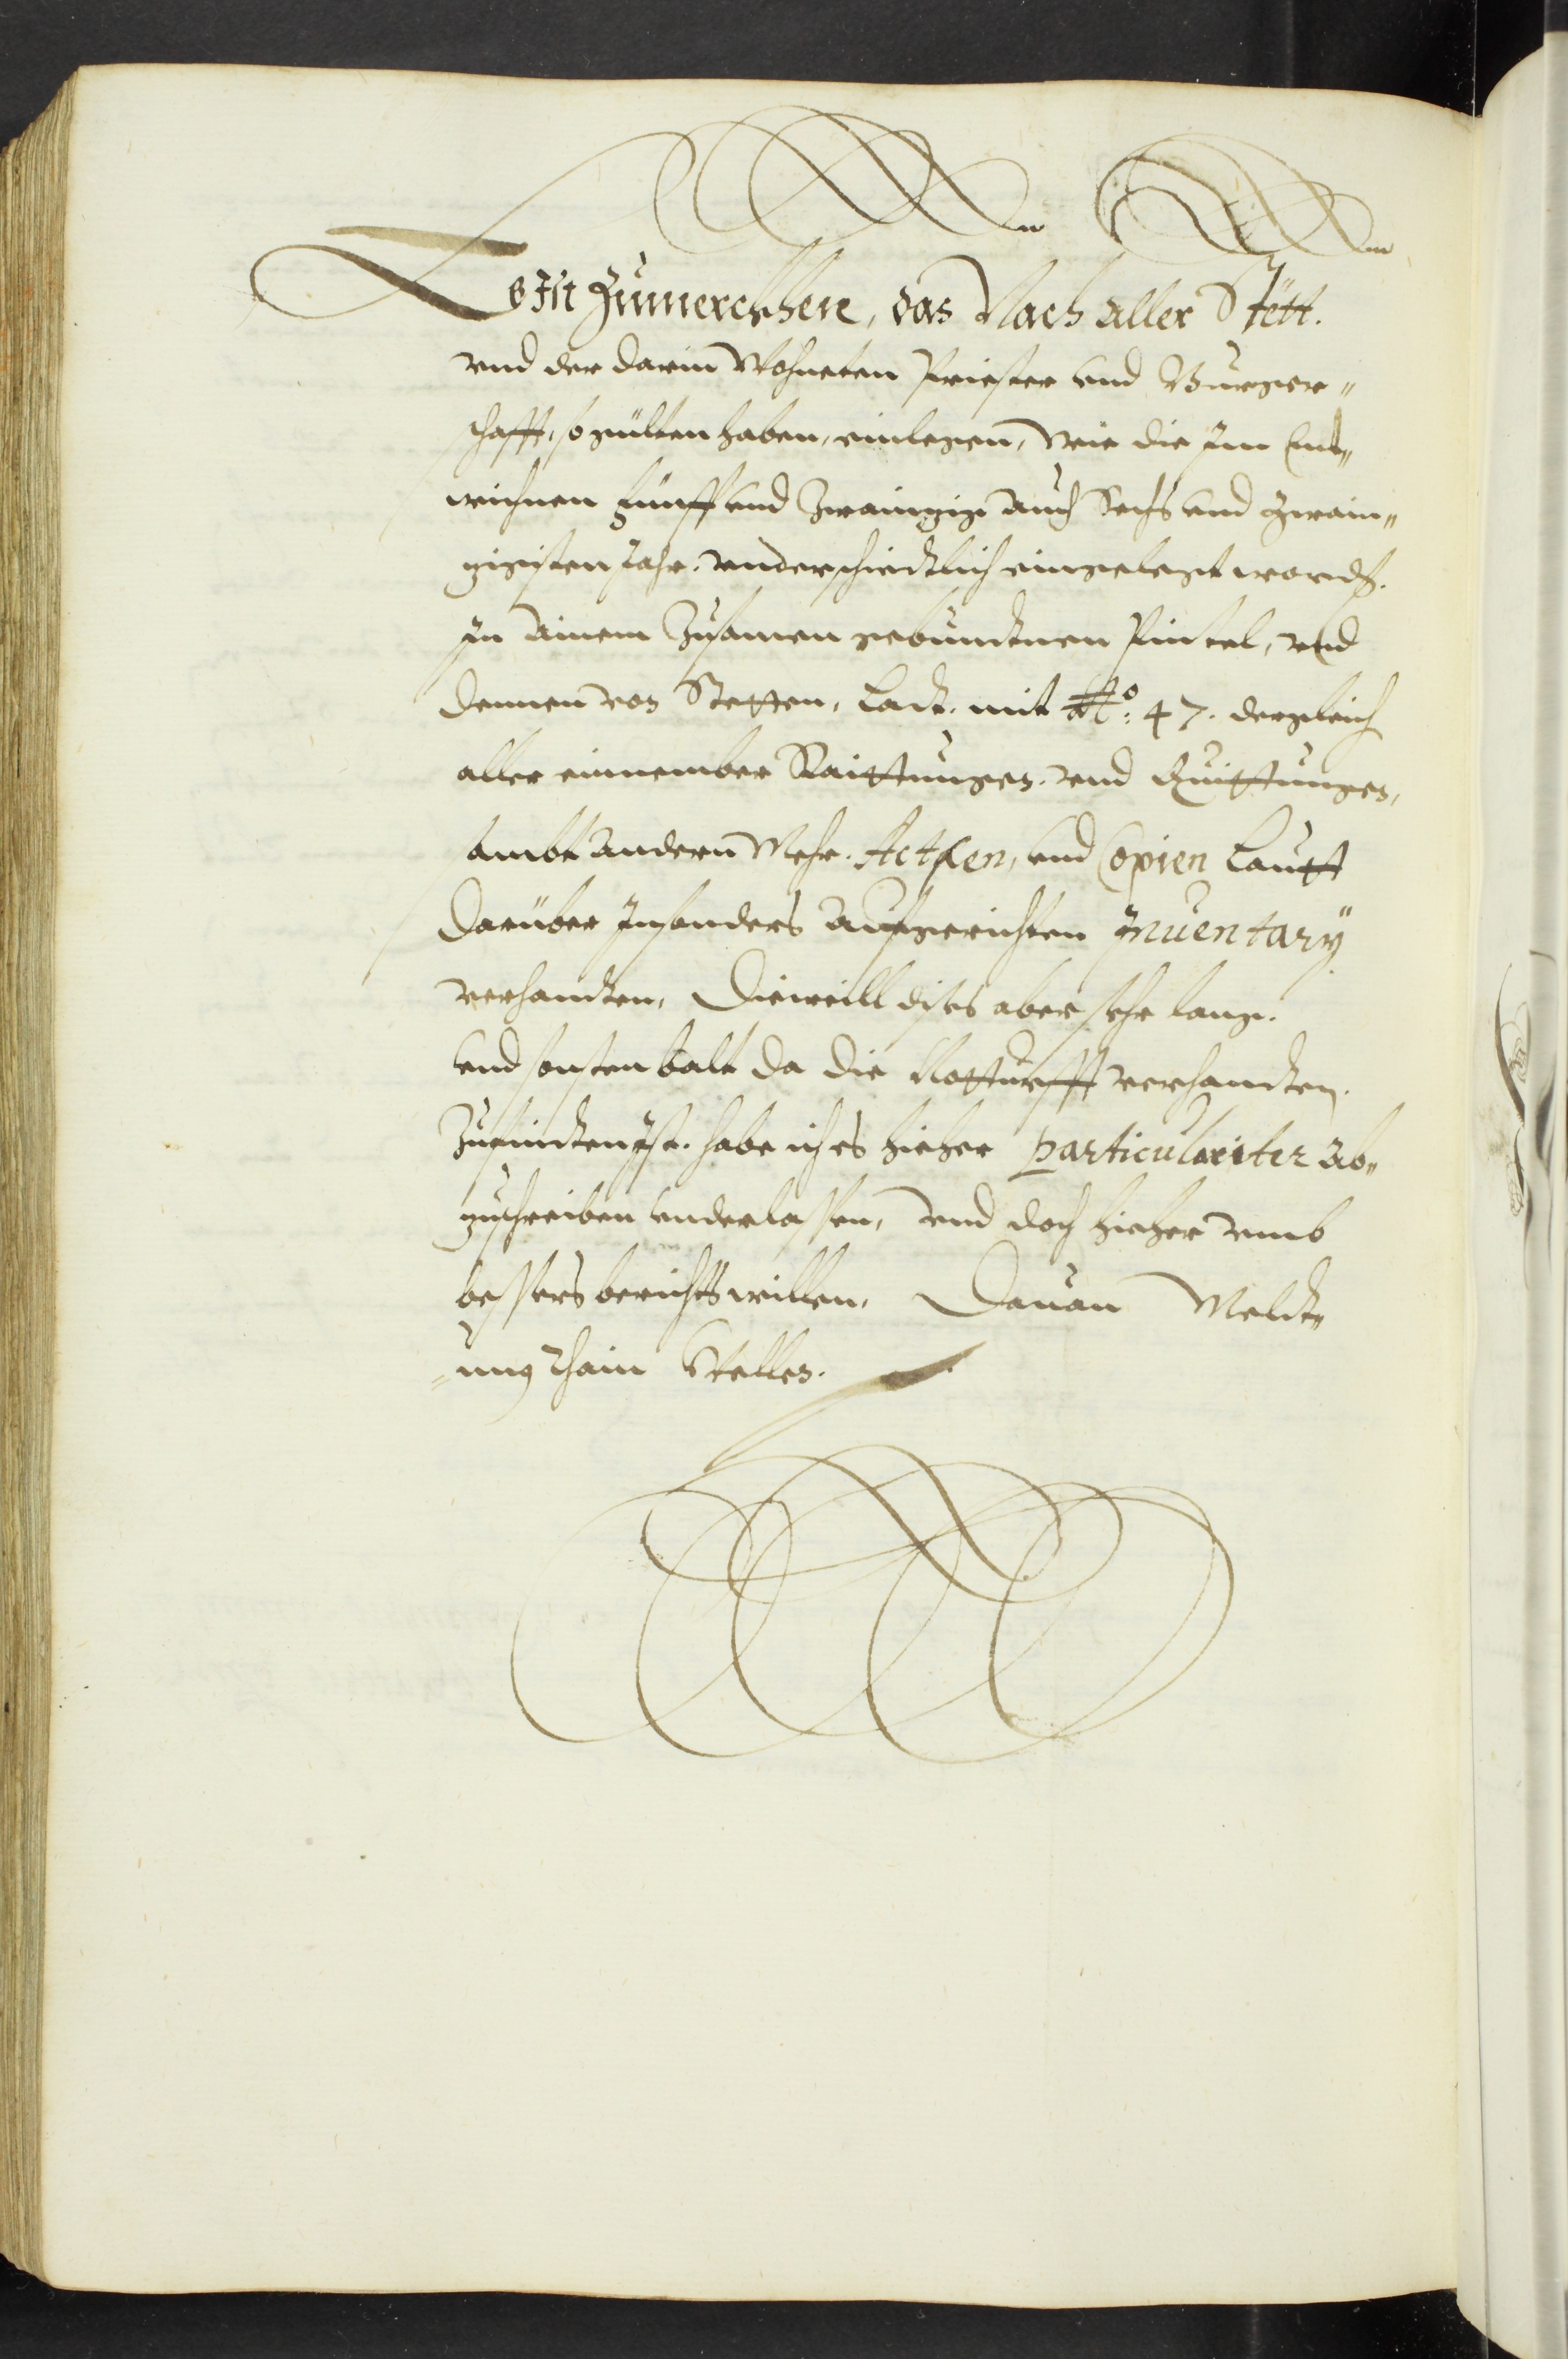 Es Ist Zumerckhen, das Nach aller Stett.
vnd der darin Wohneten Priester vnd Burger„
schafft, so gülten haben, einlegen, Wie die Im Ent„
wichnen fünff vnd Zwainzig auch Sechs vnd Zwain„
zigisten Jahr. vnderschiedtlich eingelegt word.
In Ainem Zusamen gebundtnen Püntel, vnd
dennen von Stetten, Ladt. mit No: 47. dergleich
aller einnember Raittungen. vnd Quittungen,
sambt andern Mehr. Acten, vnd Copien Lautt
darüber Insonders aufgerichten Inuentary
verhandten, Dieweill dises aber sehr lang.
vnd sonsten balt da die Notturfft verhandten.
Zufindten Ist. habe ich es hieher particulariter ab„
zuschreiben vnderlassen, vnd doch hieher vmb
bessers berichts willen, Dauan Meldt„
„ung thain Wellen.